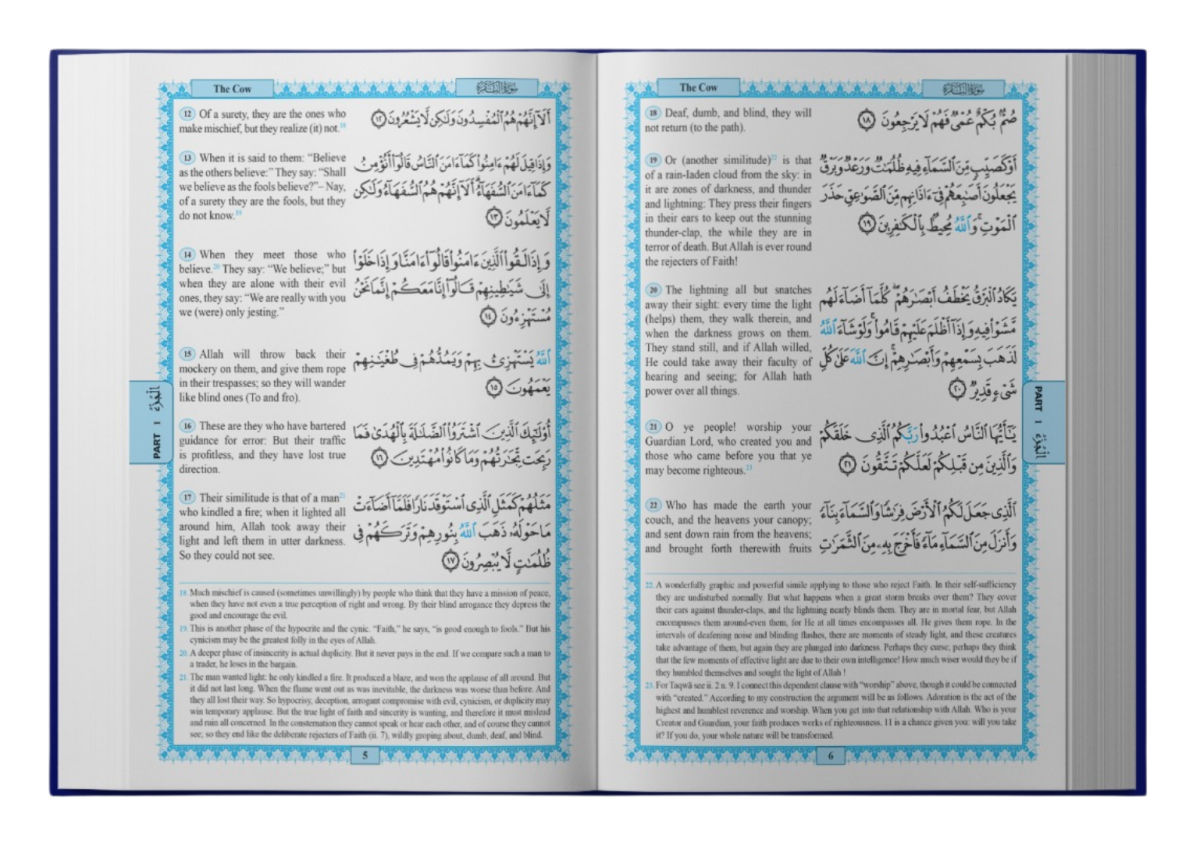 The Cow
سورة البقرة
12 Of a surety, they are the ones who
make mischief, but they realize (it) not.18
أَلَآ إِنَّهُمْ هُمُ ٱلْمُفْسِدُونَ وَلَٰكِن لَّا يَشْعُرُونَ ١٢
13 When it is said to them: “Believe
as the others believe:” They say: “Shall
we believe as the fools believe?”– Nay,
of a surety they are the fools, but they
do not know.19
وَإِذَا قِيلَ لَهُمْ ءَامِنُوا۟ كَمَآ ءَامَنَ ٱلنَّاسُ قَالُوٓا۟ أَنُؤْمِنُ
كَمَآ ءَامَنَ ٱلسُّفَهَآءُ أَلَآ إِنَّهُمْ هُمُ ٱلسُّفَهَآءُ وَلَٰكِن
لَّا يَعْلَمُونَ ١٣
14 When they meet those who
believe.20 They say: “We believe;” but
when they are alone with their evil
ones, they say: “We are really with you
we (were) only jesting.”
وَإِذَا لَقُوا۟ ٱلَّذِينَ ءَامَنُوا۟ قَالُوٓا۟ ءَامَنَّا وَإِذَا خَلَوْا۟
إِلَىٰ شَيَٰطِينِهِمْ قَالُوٓا۟ إِنَّا مَعَكُمْ إِنَّمَا نَحْنُ
مُسْتَهْزِءُونَ ١٤
15 Allah will throw back their
mockery on them, and give them rope
in their trespasses; so they will wander
like blind ones (To and fro).
ٱللَّهُ يَسْتَهْزِئُ بِهِمْ وَيَمُدُّهُمْ فِى طُغْيَٰنِهِمْ
يَعْمَهُونَ ١٥
16 These are they who have bartered
guidance for error: But their traffic
is profitless, and they have lost true
direction.
أُو۟لَٰٓئِكَ ٱلَّذِينَ ٱشْتَرَوُا۟ ٱلضَّلَٰلَةَ بِٱلْهُدَىٰ فَمَا
رَبِحَت تِّجَٰرَتُهُمْ وَمَا كَانُوا۟ مُهْتَدِينَ ١٦
17 Their similitude is that of a man21
who kindled a fire; when it lighted all
around him, Allah took away their
light and left them in utter darkness.
So they could not see.
مَثَلُهُمْ كَمَثَلِ ٱلَّذِى ٱسْتَوْقَدَ نَارًا فَلَمَّآ أَضَآءَتْ
مَا حَوْلَهُۥ ذَهَبَ ٱللَّهُ بِنُورِهِمْ وَتَرَكَهُمْ فِى
ظُلُمَٰتٍ لَّا يُبْصِرُونَ ١٧
18. Much mischief is caused (sometimes unwillingly) by people who think that they have a mission of peace,
when they have not even a true perception of right and wrong. By their blind arrogance they depress the
good and encourage the evil.
19. This is another phase of the hypocrite and the cynic. “Faith,” he says, “is good enough to fools.” But his
cynicism may be the greatest folly in the eyes of Allah.
20. A deeper phase of insincerity is actual duplicity. But it never pays in the end. If we compare such a man to
a trader, he loses in the bargain.
21. The man wanted light: he only kindled a fire. It produced a blaze, and won the applause of all around. But
it did not last long. When the flame went out as was inevitable, the darkness was worse than before. And
they all lost their way. So hypocrisy, deception, arrogant compromise with evil, cynicism, or duplicity may
win temporary applause. But the true light of faith and sincerity is wanting, and therefore it must mislead
and ruin all concerned. In the consternation they cannot speak or hear each other, and of course they cannot
see; so they end like the deliberate rejecters of Faith (ii. 7), wildly groping about, dumb, deaf, and blind.
5
PART ١ الجزء
The Cow
سورة البقرة
18 Deaf, dumb, and blind, they will
not return (to the path).
صُمٌّۢ بُكْمٌ عُمْىٌ فَهُمْ لَا يَرْجِعُونَ ١٨
19 Or (another similitude)22 is that
of a rain-laden cloud from the sky: in
it are zones of darkness, and thunder
and lightning: They press their fingers
in their ears to keep out the stunning
thunder-clap, the while they are in
terror of death. But Allah is ever round
the rejecters of Faith!
أَوْ كَصَيِّبٍ مِّنَ ٱلسَّمَآءِ فِيهِ ظُلُمَٰتٌ وَرَعْدٌ وَبَرْقٌ
يَجْعَلُونَ أَصَٰبِعَهُمْ فِىٓ ءَاذَانِهِم مِّنَ ٱلصَّوَٰعِقِ حَذَرَ
ٱلْمَوْتِ وَٱللَّهُ مُحِيطٌۢ بِٱلْكَٰفِرِينَ ١٩
20 The lightning all but snatches
away their sight: every time the light
(helps) them, they walk therein, and
when the darkness grows on them.
They stand still, and if Allah willed,
He could take away their faculty of
hearing and seeing; for Allah hath
power over all things.
يَكَادُ ٱلْبَرْقُ يَخْطَفُ أَبْصَٰرَهُمْ كُلَّمَآ أَضَآءَ لَهُم
مَّشَوْا۟ فِيهِ وَإِذَآ أَظْلَمَ عَلَيْهِمْ قَامُوا۟ وَلَوْ شَآءَ ٱللَّهُ
لَذَهَبَ بِسَمْعِهِمْ وَأَبْصَٰرِهِمْ إِنَّ ٱللَّهَ عَلَىٰ كُلِّ
شَىْءٍ قَدِيرٌ ٢٠
21 O ye people! worship your
Guardian Lord, who created you and
those who came before you that ye
may become righteous.23
يَٰٓأَيُّهَا ٱلنَّاسُ ٱعْبُدُوا۟ رَبَّكُمُ ٱلَّذِى خَلَقَكُمْ
وَٱلَّذِينَ مِن قَبْلِكُمْ لَعَلَّكُمْ تَتَّقُونَ ٢١
22 Who has made the earth your
couch, and the heavens your canopy;
and sent down rain from the heavens;
and brought forth therewith fruits
ٱلَّذِى جَعَلَ لَكُمُ ٱلْأَرْضَ فِرَٰشًا وَٱلسَّمَآءَ بِنَآءً
وَأَنزَلَ مِنَ ٱلسَّمَآءِ مَآءً فَأَخْرَجَ بِهِۦ مِنَ ٱلثَّمَرَٰتِ
22. A wonderfully graphic and powerful simile applying to those who reject Faith. In their self-sufficiency
they are undisturbed normally. But what happens when a great storm breaks over them? They cover
their ears against thunder-claps, and the lightning nearly blinds them. They are in mortal fear, but Allah
encompasses them around-even them, for He at all times encompasses all. He gives them rope. In the
intervals of deafening noise and blinding flashes, there are moments of steady light, and these creatures
take advantage of them, but again they are plunged into darkness. Perhaps they curse; perhaps they think
that the few moments of effective light are due to their own intelligence! How much wiser would they be if
they humbled themselves and sought the light of Allah !
23. For Taqwā see ii. 2 n. 9. I connect this dependent clause with “worship” above, though it could be connected
with “created.” According to my construction the argument will be as follows. Adoration is the act of the
highest and humblest reverence and worship. When you get into that relationship with Allah. Who is your
Creator and Guardian, your faith produces works of righteousness. 11 is a chance given you: will you take
it? If you do, your whole nature will be transformed.
6
PART ١ الجزء